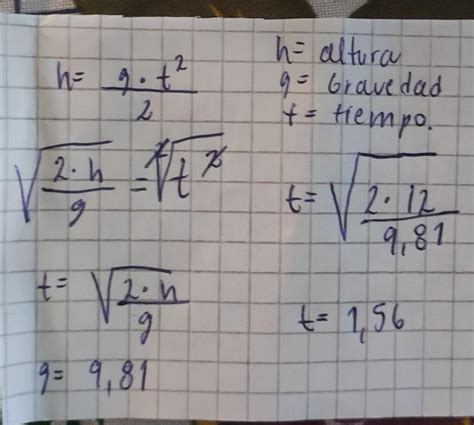 h = g · t² / 2
√(2 · h / g) = ²√(t²)
t = √(2 · h / g)
g = 9,81
h = altura
g = Gravedad
t = tiempo.
t = √(2 · 12 / 9,81)
t = 1,56